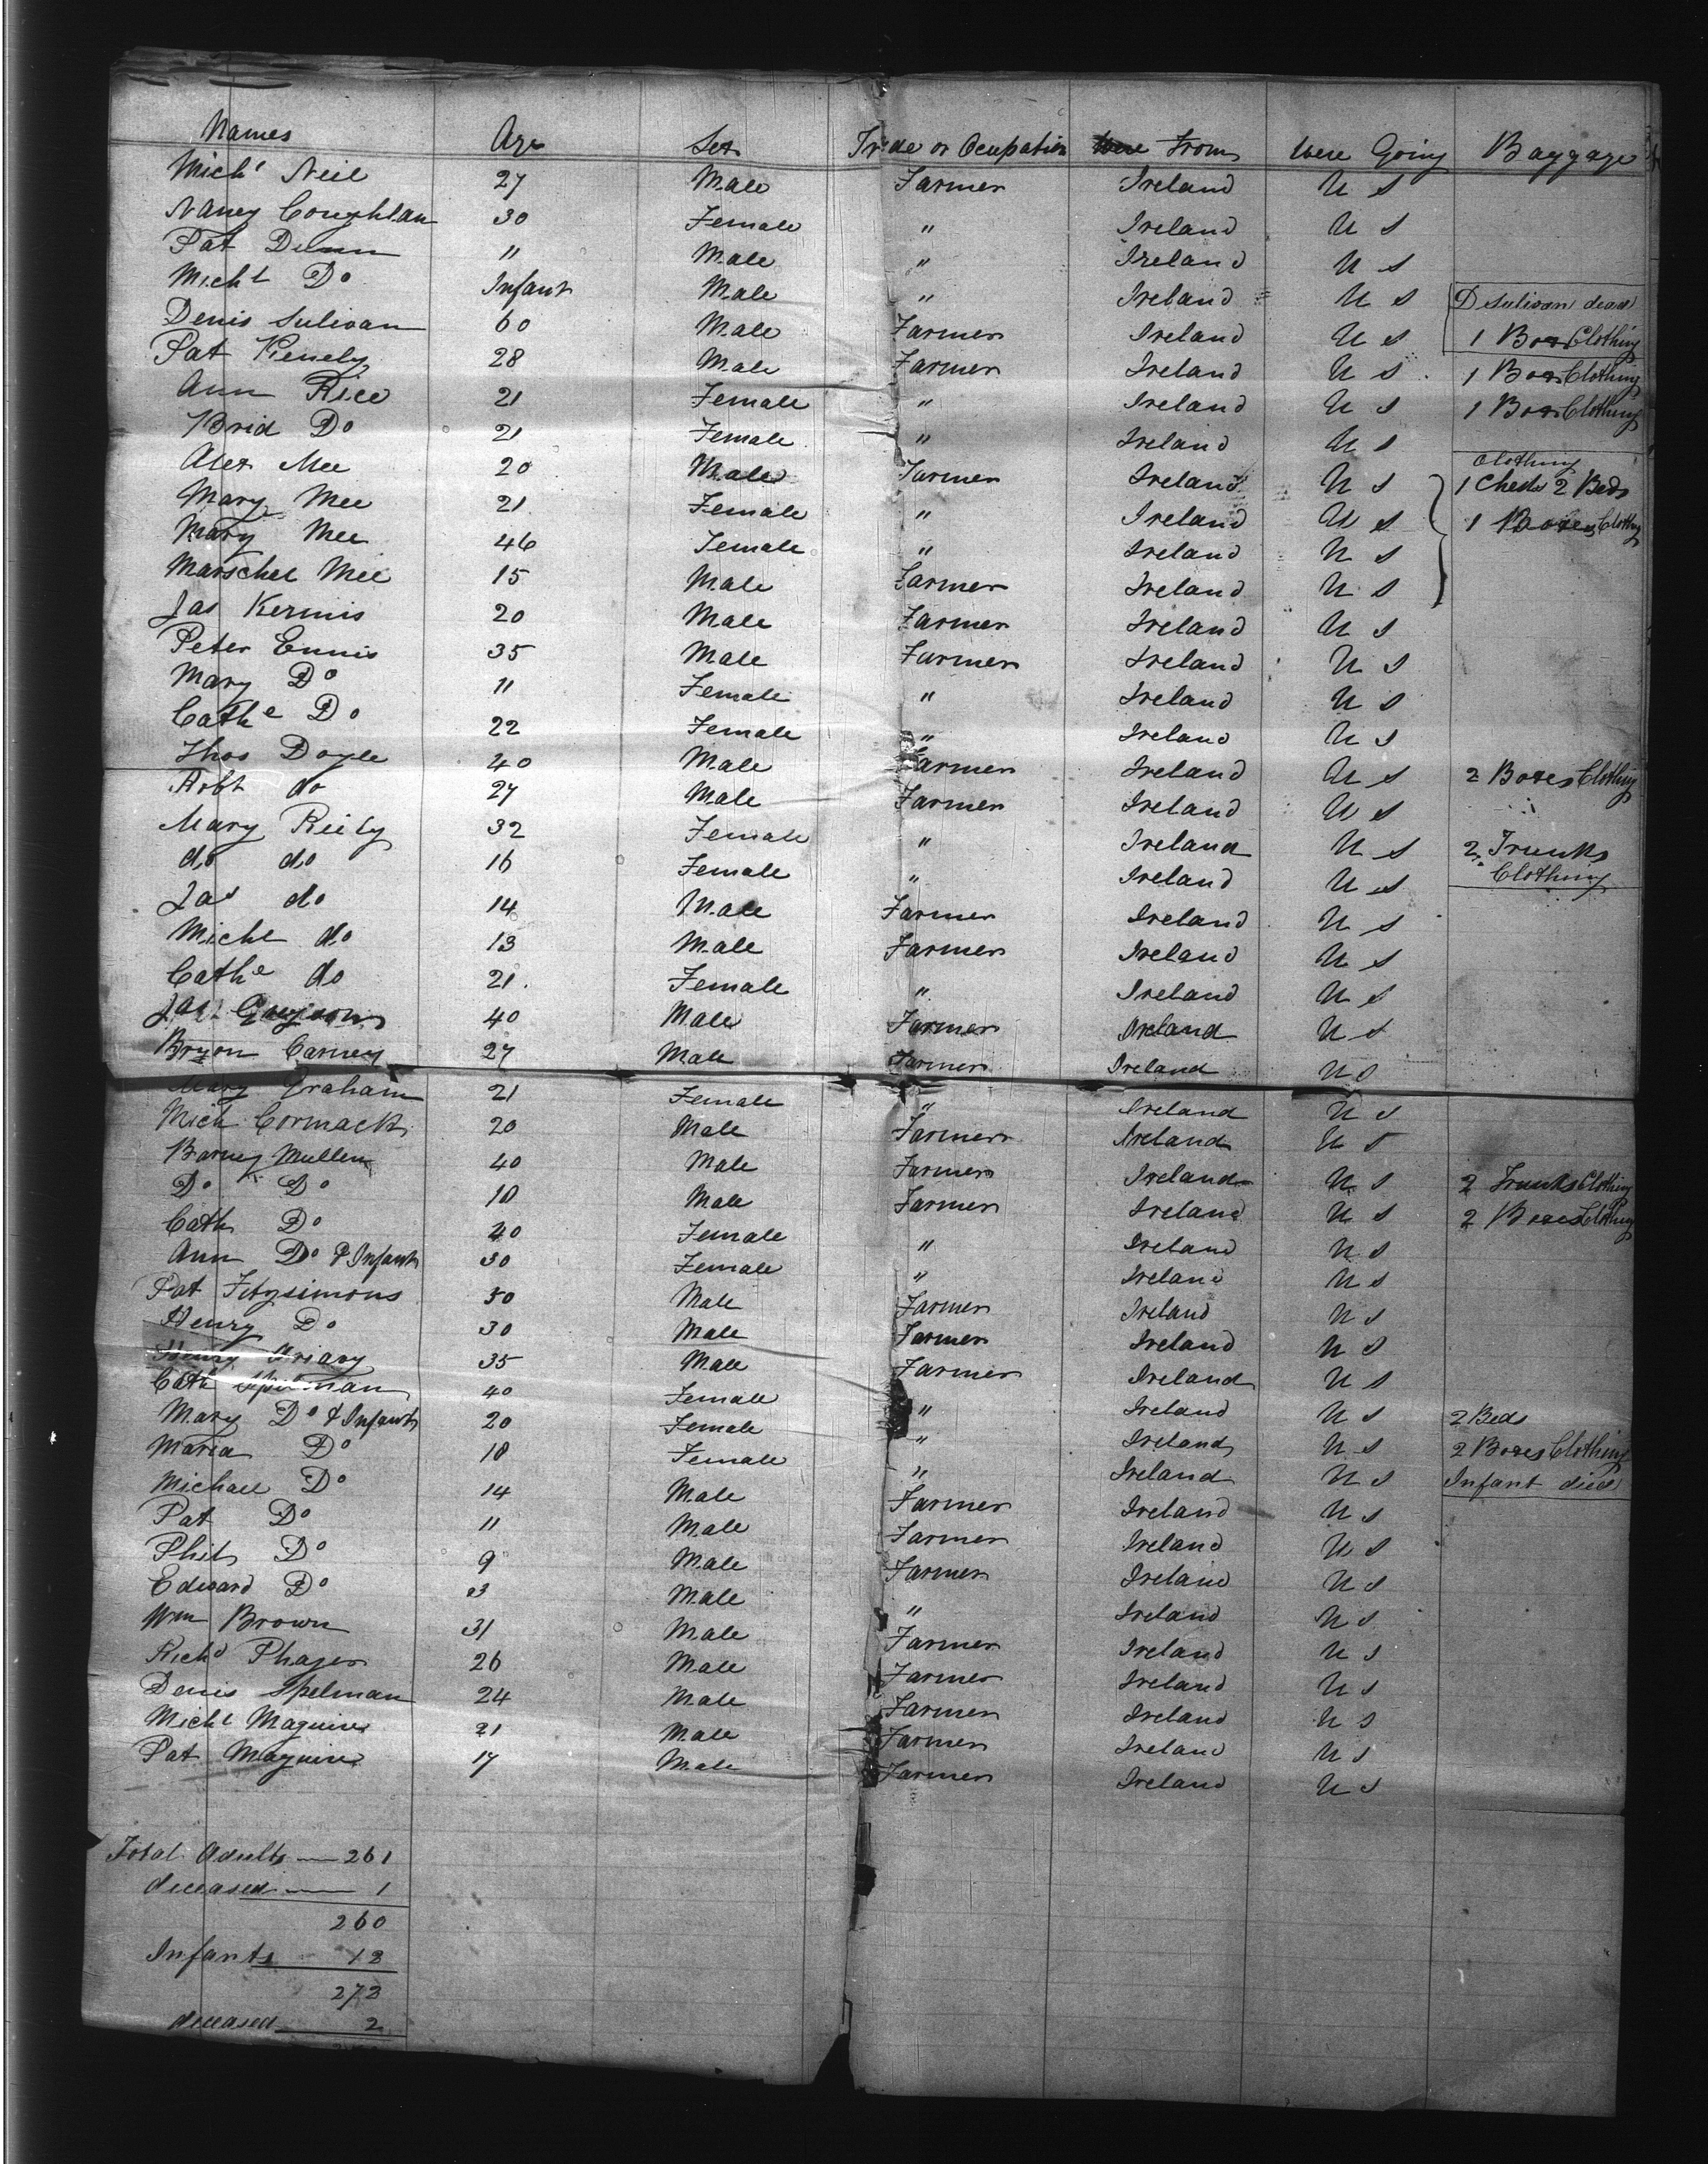 Names Age Sex Trade or Ocupation Were From Were Going Baggage
Mich' Neil 27 Male Farmer Ireland U S
Nancy Coughlan 30 Female " Ireland U S
Pat Dunn 11 Male " Ireland U S
Michl Do Infant Male " Ireland U S D Sulivan dead
Denis Sulivan 60 Male Farmer Ireland U S 1 Box Clothing
Pat Kenely 28 Male Farmer Ireland U S 1 Box Clothing
Ann Rice 21 Female " Ireland U S 1 Box Clothing
Brid Do 21 Female " Ireland U S
Clothing
Alex Mee 20 Male Farmer Ireland U S 1 Chest 2 Beds
Mary Mee 21 Female " Ireland U S 1 Boxes Clothg
Mary Mee 46 Female " Ireland U S
Marschel Mee 15 Male Farmer Ireland U S
Jas Kermis 20 Male Farmer Ireland U S
Peter Ennis 35 Male Farmer Ireland U S
Mary Do 11 Female " Ireland U S
Cathe Do 22 Female " Ireland U S
Thos Doyle 40 Male Farmer Ireland U S 2 Boxes Clothing
Robt do 27 Male Farmer Ireland U S
Mary Reily 32 Female " Ireland U S 2 Trunks
do do 16 Female " Ireland U S Clothing
Jas do 14 Male Farmer Ireland U S
Michl do 13 Male Farmer Ireland U S
Cathe do 21 Female " Ireland U S
Jas 40 Male Farmer Ireland U S
Bryon Carney 27 Male Farmer Ireland U S
Mary Graham 21 Female " Ireland U S
Mich Cormack 20 Male Farmer Ireland U S
Barney Mullen 40 Male Farmer Ireland U S 2 Trunks Clothing
Do Do 10 Male Farmer Ireland U S 2 Boxes Clothing
Cath Do 40 Female " Ireland U S
Ann Do & Infant 30 Female " Ireland U S
Pat Fitzsimons 50 Male Farmer Ireland U S
Henry Do 30 Male Farmer Ireland U S
Henry 35 Male Farmer Ireland U S
Cath Spelman 40 Female " Ireland U S 2 Beds
Mary Do & Infant 20 Female " Ireland U S 2 Boxes Clothing
Maria Do 10 Female " Ireland U S Infant died
Michael Do 14 Male Farmer Ireland U S
Pat Do 11 Male Farmer Ireland U S
Phil Do 9 Male Farmer Ireland U S
Edward Do 3 Male " Ireland U S
Wm Brown 31 Male Farmer Ireland U S
Richd Phager 26 Male Farmer Ireland U S
Denis Spelman 24 Male Farmer Ireland U S
Michl Maguire 21 Male Farmer Ireland U S
Pat Maguire 17 Male Farmer Ireland U S
Total Adults 261
deceased 1
260
Infants 13
273
deceased 2